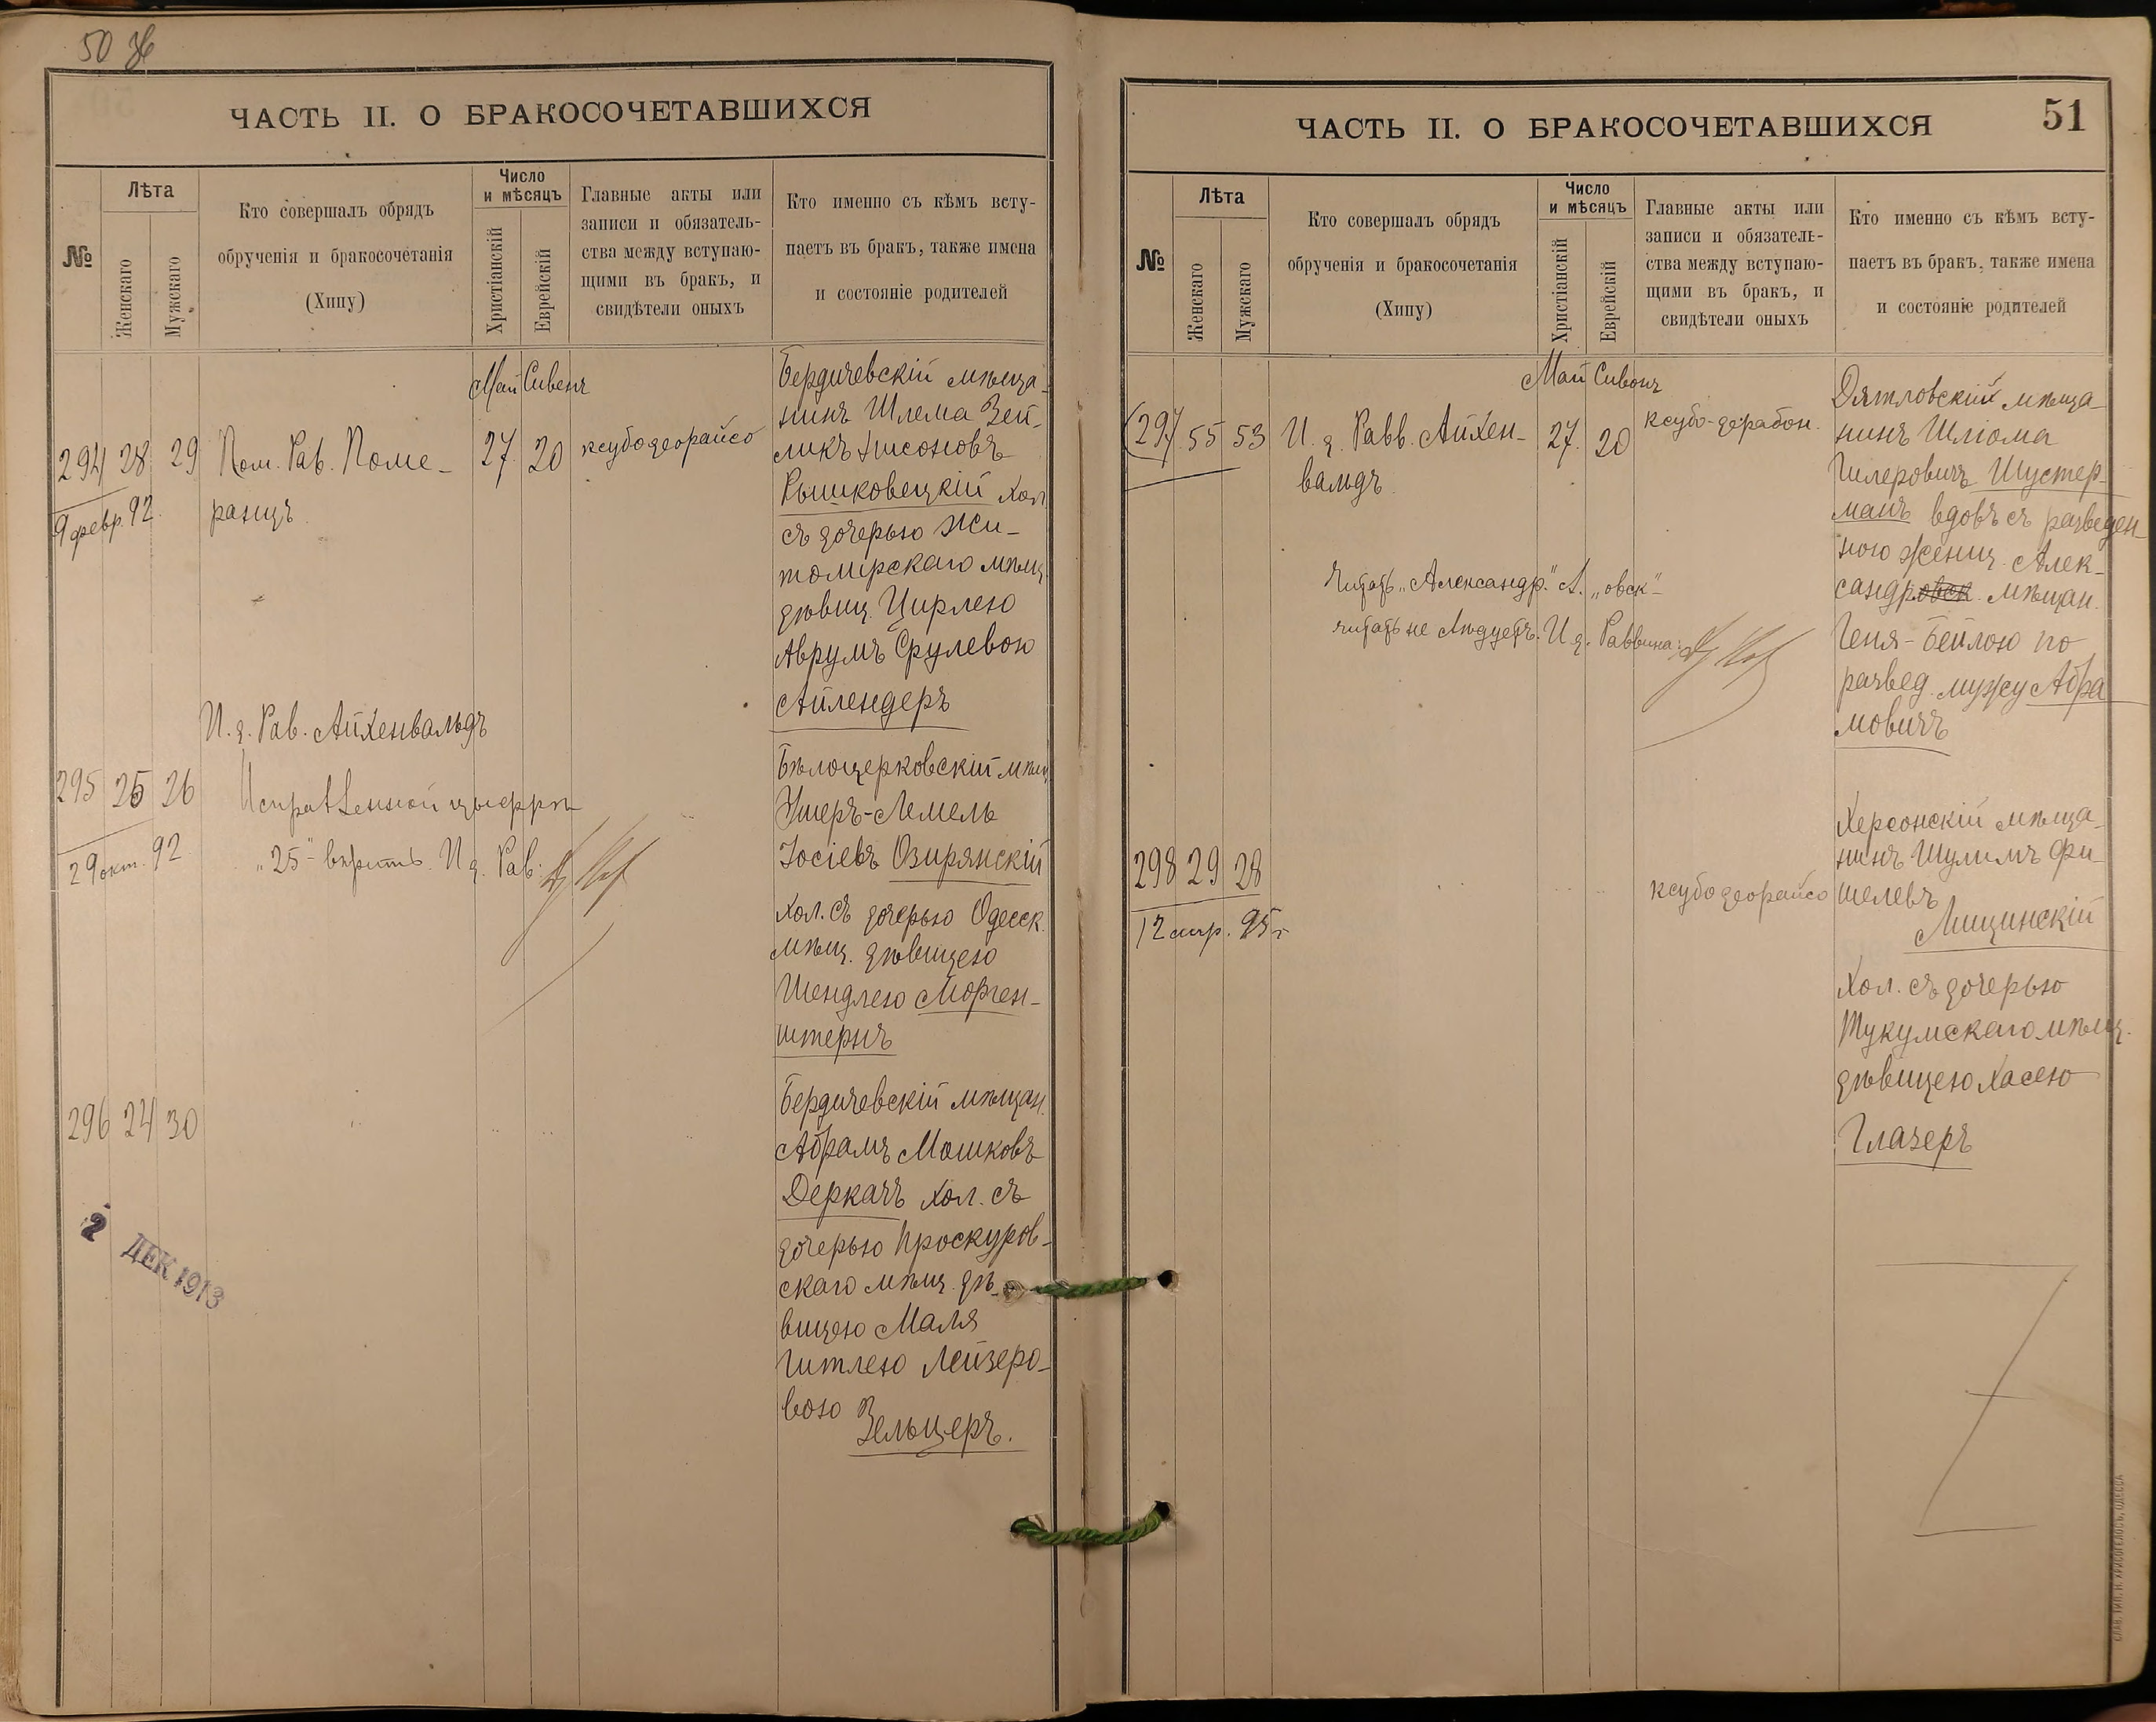 50
ЧАСТЬ II. О БРАКОСОЧЕТАВШИХСЯ
№
Лѣта
Женскаго
Мужскаго
Кто совершалъ обрядъ
обрученія и бракосочетанія
(Хипу)
Число
и мѣсяцъ
Христіанскій
Еврейскій
Главные акты или
записи и обязатель-
ства между вступаю-
щими въ бракъ, и
свидѣтели оныхъ
Кто именно съ кѣмъ всту-
паетъ въ бракъ, также имена
и состояніе родителей
Май Сивенъ
294 28 29 Пом. Рав. Поме-
ранцъ
27 20 ксубо деорайсо
9 февр. 92.
Бердичевскій мѣща-
нинъ Шлема Зей-
ликъ Нисоновъ
Рышковецкій хол
съ дочерью Жи-
томірскаго мѣщ.
дѣвиц. Цирлею
Аврумъ Срулевою
Айлендеръ
И. д. Рав. Айхенвальдъ
295 25 26
29 окт. 92
Исправленной цыфрѣ
"25" вѣрить. И. д. Рав:
Бѣлоцерковскій мѣщ
Ушеръ-Лемель
Іосіевъ Озирянскій
хол. съ дочерью Одесск.
мѣщ. дѣвицею
Шендлею Морген-
штернъ
296 24 30
Бердичевскій мѣщан.
Абрамъ Мошковъ
Деркачъ хол. съ
дочерью Проскуров-
скаго мѣщ. дѣ-
вицею Маля
Гитлею Лейзеро-
вою Зельцеръ.
2 ДЕК 1913
51
ЧАСТЬ II. О БРАКОСОЧЕТАВШИХСЯ
№
Лѣта
Женскаго
Мужскаго
Кто совершалъ обрядъ
обрученія и бракосочетанія
(Хипу)
Число
и мѣсяцъ
Христіанскій
Еврейскій
Главные акты или
записи и обязатель-
ства между вступаю-
щими въ бракъ, и
свидѣтели оныхъ
Кто именно съ кѣмъ всту-
паетъ въ бракъ, также имена
и состояніе родителей
Май Сивонъ
297 55 53 И. д. Равв. Айхен-
вальдъ
27. 20 ксубо-дерабон.
Дятловскій мѣща-
нинъ Шліома
Гилеровичъ Шустер-
манъ вдовъ съ разведен-
ною женщ. Алек-
сандровск. мѣщан.
Геня-Бейлою по
развед. мужу Абра
мовичъ
Читать "Александр." А. "овск"
читать не слѣдуетъ. И. д. Раввина:
298 29 28
12 апр. 95 г
ксубо деорайсо
Херсонскій мѣща-
нинъ Шулимъ Фи-
шелевъ
Лищинскій
Хол. съ дочерью
Тукумскаго мѣщ.
дѣвицею Хасею
Глазеръ
СЛАВ. ТИП. Н. ХРИСОГЕЛОСЪ, ОДЕССА